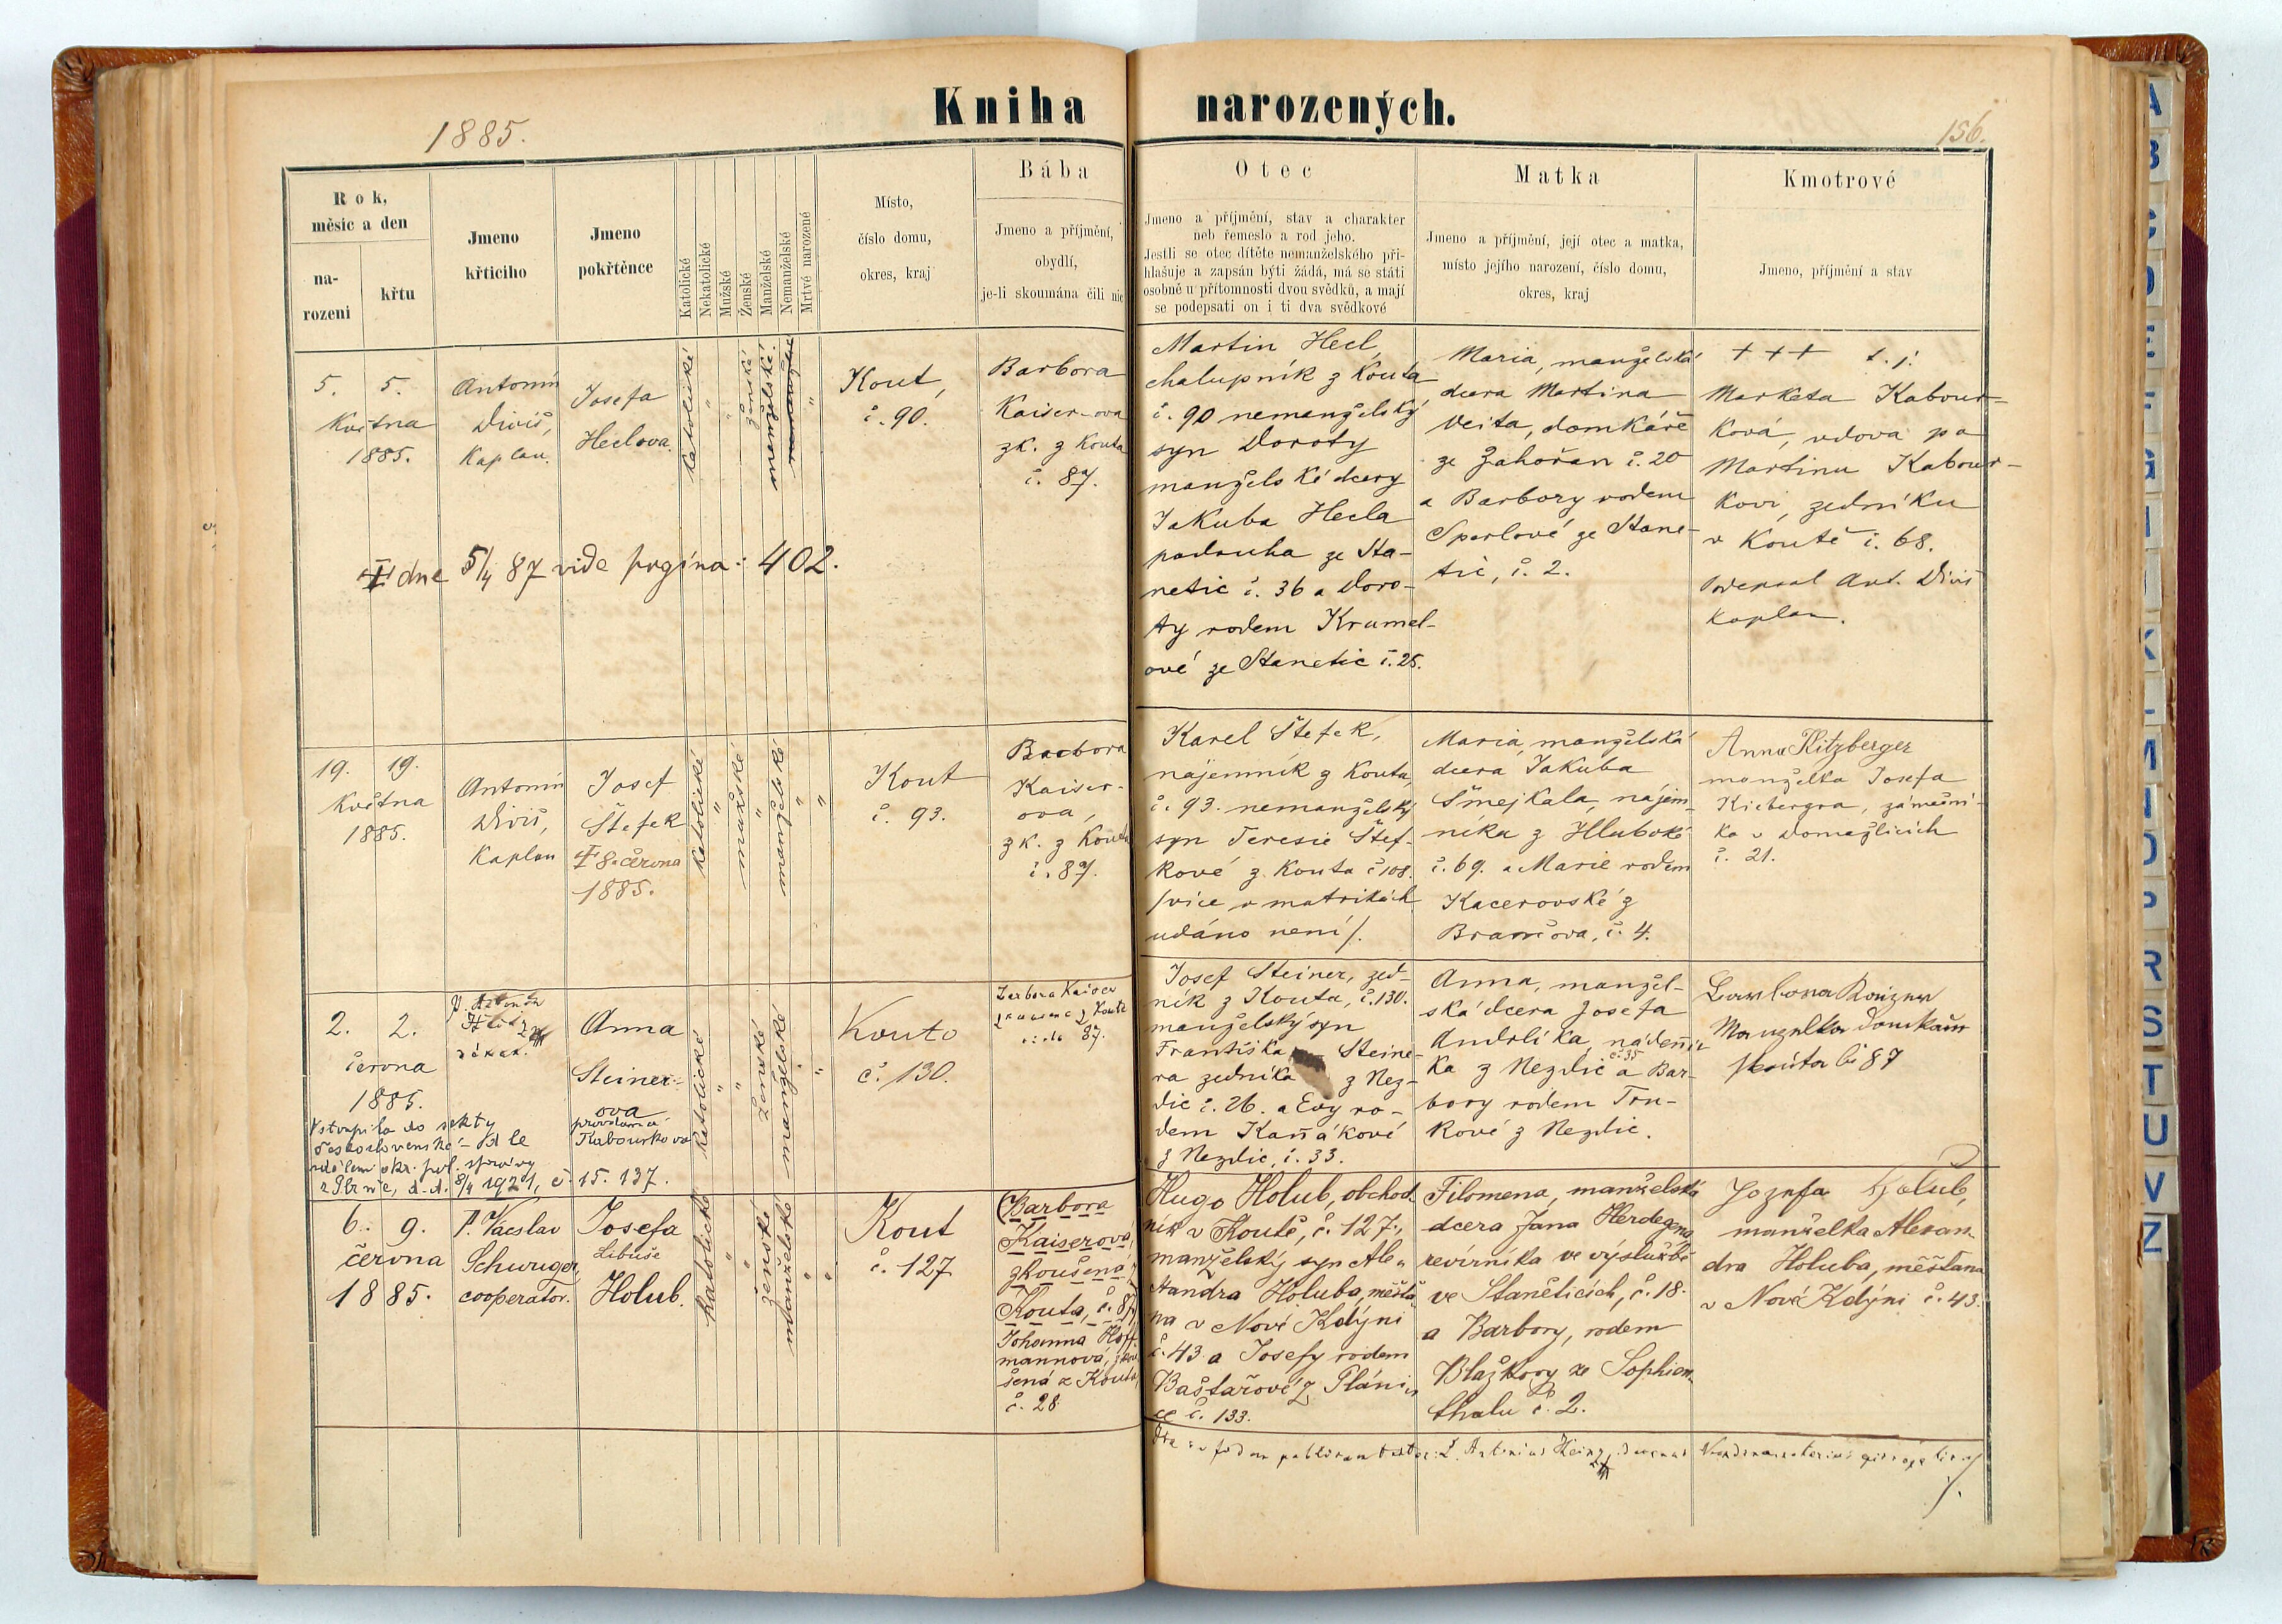 Kniha narozených.
1885.
156.
Rok,
měsíc a den
na-
rozeni
křtu
Jmeno
křticiho
Jmeno
pokřtěnce
Katolické
Nekatolické
Mužské
Ženské
Manželské
Nemanželské
Mrtvé narozené
Místo,
číslo domu,
okres, kraj
Bába
Jmeno a příjmění,
obydlí,
je-li skoumána čili nic
Otec
Jmeno a příjmění, stav a charakter
neb řemeslo a rod jeho.
Jestli se otec dítěte nemanželského při-
hlašuje a zapsán býti žádá, má se státi
osobně u přítomnosti dvou svědků, a mají
se podepsati on i ti dva svědkové
Matka
Jmeno a příjmění, její otec a matka,
místo jejího narození, číslo domu,
okres, kraj
Kmotrové
Jmeno, příjmění a stav
5. 5.
Května
1885.
Antonín
Diviš,
Kaplan.
Josefa
Heclova.
katolické
"
"
ženské
manželské.
nemanželské
"
Kout,
č. 90.
Barbora
Kaiser-ova
zk. z Kouta
č. 87.
Martin Hecl,
chalupník z Kouta
č. 90 nemanželský
syn Doroty
manželské dcery
Jakuba Hecla
podruha ze Sta-
netic č. 36 a Doro-
ty rodem Krumel-
ové ze Stanetic č. 25.
Maria, manželská
dcera Martina
Veita, domkáře
ze Zahořan č. 20
a Barbory rodem
Sperlové ze Stane-
tic, č. 2.
+++ t. j.
Marketa Kabour-
ková, vdova po
Martinu Kabour-
kovi, zedníku
v Koutě č. 68.
Podepsal Ant. Diviš
kaplan.
‡ dne 5/4 87 vide pagina: 402.
19. 19.
Května
1885.
Antonín
Diviš,
Kaplan
Josef
Štefek
‡ 8. června
1885.
katolické
"
mužské
"
manželské
"
"
Kout
č. 93.
Barbora
Kaiser-
ova,
zk. z Kouta
č. 87.
Karel Štefek,
nájemník z Kouta,
č. 93. nemanželský
syn Teresie Štef-
kové z Kouta č 108.
/více v matrikách
udáno není/.
Maria, manželská
dcera Jakuba
Šmejkala, nájem-
níka z Hluboké
č. 69. a Marie rodem
Kacerovské z
Branšova, č. 4.
Anna Kitzberger
manželka Josefa
Kicbergra, zámeční-
ka v Domažlicích
č. 21.
2. 2.
června
1885.
děkan.
Anna
Steiner-
ova
provdaná
Kabourkova
katolické
"
"
ženské
manželské
"
"
Kouto
č. 130.
Barbora Kaiser
zkoušená z Kouta
čislo 87.
Josef Steiner, zed-
ník z Kouta, č. 130.
manželský syn
Františka Steine-
ra zedníka z Nez-
dic č. 26. a Evy ro-
dem Kaňákové
z Nezdic, č. 33.
Anna, manžel-
ská dcera Josefa
Andrlíka, nádenní-
ka z Nezdic č 35 a Bar-
bory rodem Tru-
kové z Nezdic.
Manzelka Domkaře
Kouta č 87
Vstoupila do sekty
československé – dle
sdělení okr. pol. správy
8/4 1921, č. 15.137.
6. 9.
června
1885.
P. Václav
Schwuger,
cooperator.
Josefa
Libuše
Holub.
katolické
"
"
ženské
manželské
"
"
Kout
č. 127
Barbora
Kaiserová,
zkoušená z
Kouta, č. 87,
Johanna Hoff-
mannová, zkou-
šená z Kouta,
č. 28
Hugo Holub, obchod-
ník v Koutě, č. 127.,
manželský syn Ale-
xandra Holuba, měšťa-
na v Nové Kdýni
č. 43. a Josefy rodem
Baštařové z Plani-
ce č. 133.
Filomena, manželská
dcera Jana Herdegena,
revírníka ve výslužbě
ve Staněticích, č. 18.
a Barbory, rodem
Blažkovy ze Sophien-
thalu č. 2.
Jozefa Holub,
manželka Alexan-
dra Holuba, měšťana
v Nové Kdýni č. 43.